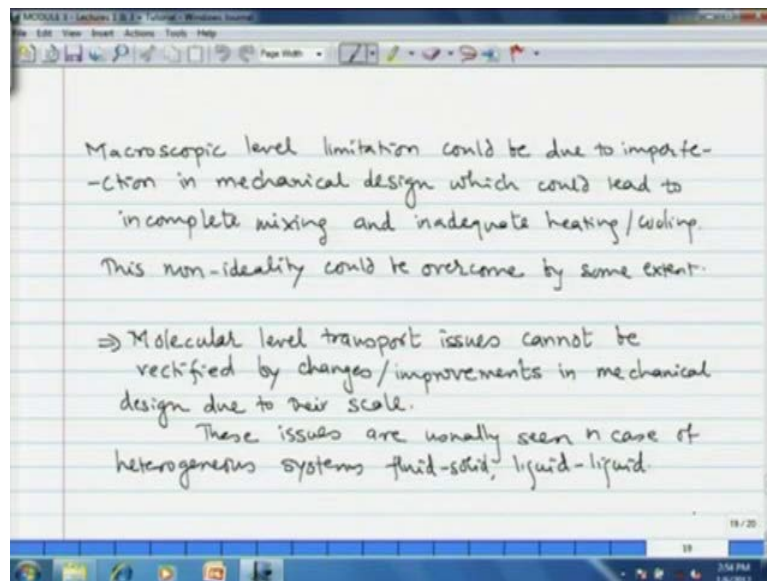 MODULE 3 - Lectures 1 & 2 + Tutorial - Windows Journal
File Edit View Insert Actions Tools Help
Page Width
Macroscopic level limitation could be due to imperfe-
-ction in mechanical design which could lead to
incomplete mixing and inadequate heating/cooling.
This non-ideality could be overcome by some extent.
⇒ Molecular level transport issues cannot be
rectified by changes/improvements in mechanical
design due to their scale.
These issues are usually seen in case of
heterogeneous systems fluid-solid, liquid-liquid.
19 / 20
19
2:54 PM